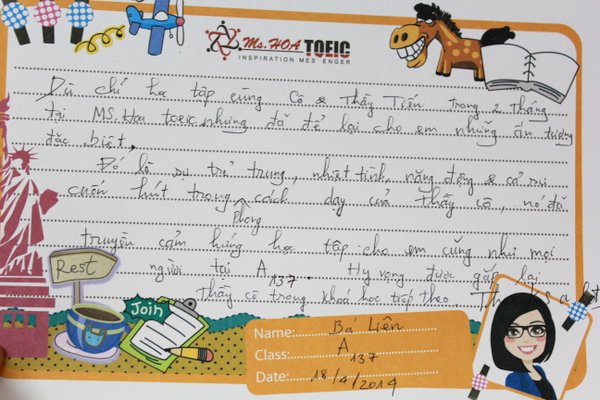 Ms. HOA TOEIC
INSPIRATION MES ENGER
Dù chỉ học tập cùng Cô & Thầy Tiến trong 2 tháng
tại MS. Hoa toeic, nhưng đã để lại cho em những ấn tượng
đặc biệt.
Đó là sự trẻ trung, nhiệt tình, năng động & cả sự
cuốn hút trong phong cách dạy của thầy cô, nó đã
truyền cảm hứng học tập cho em cũng như mọi
người tại A137. Hy vọng được gặp lại
Thầy cô trong khoá học tiếp theo. Thanks a lot
Rest
Join
Name: Bá Liên
Class: A137
Date: 18/4/2014